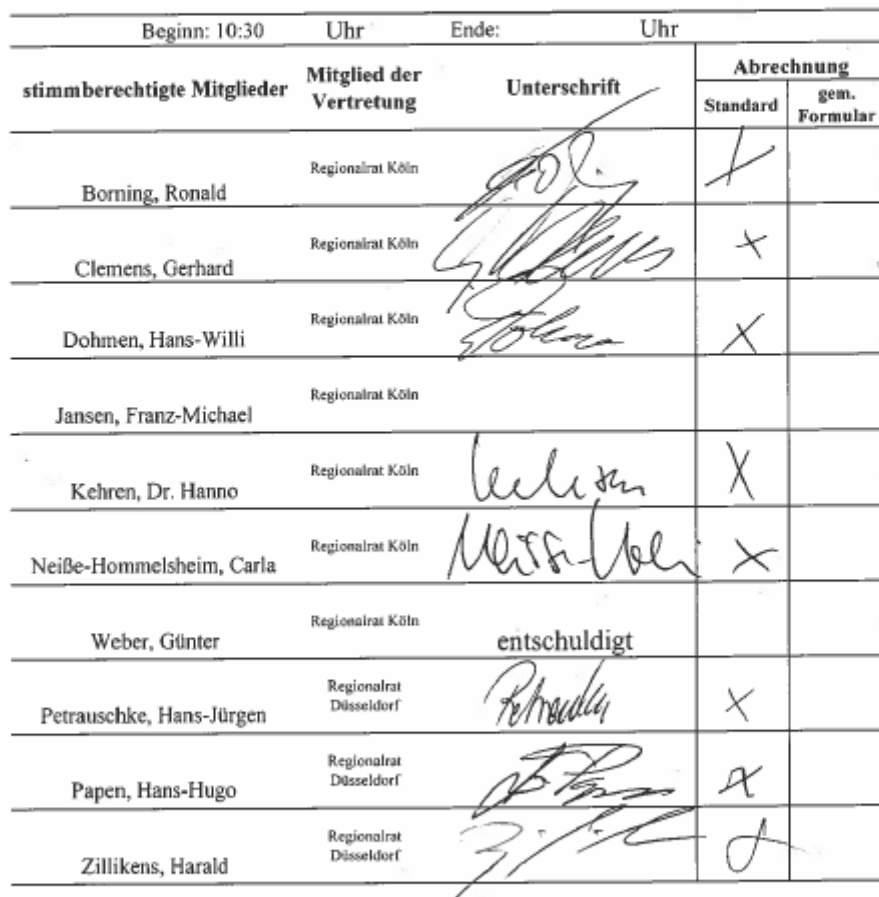 Beginn: 10:30 Uhr Ende: Uhr
stimmberechtigte Mitglieder Mitglied der Vertretung Unterschrift Abrechnung
Standard gem. Formular
Borning, Ronald Regionalrat Köln
Clemens, Gerhard Regionalrat Köln
Dohmen, Hans-Willi Regionalrat Köln
Jansen, Franz-Michael Regionalrat Köln
Kehren, Dr. Hanno Regionalrat Köln
Neiße-Hommelsheim, Carla Regionalrat Köln
Weber, Günter Regionalrat Köln entschuldigt
Petrauschke, Hans-Jürgen Regionalrat Düsseldorf
Papen, Hans-Hugo Regionalrat Düsseldorf
Zillikens, Harald Regionalrat Düsseldorf